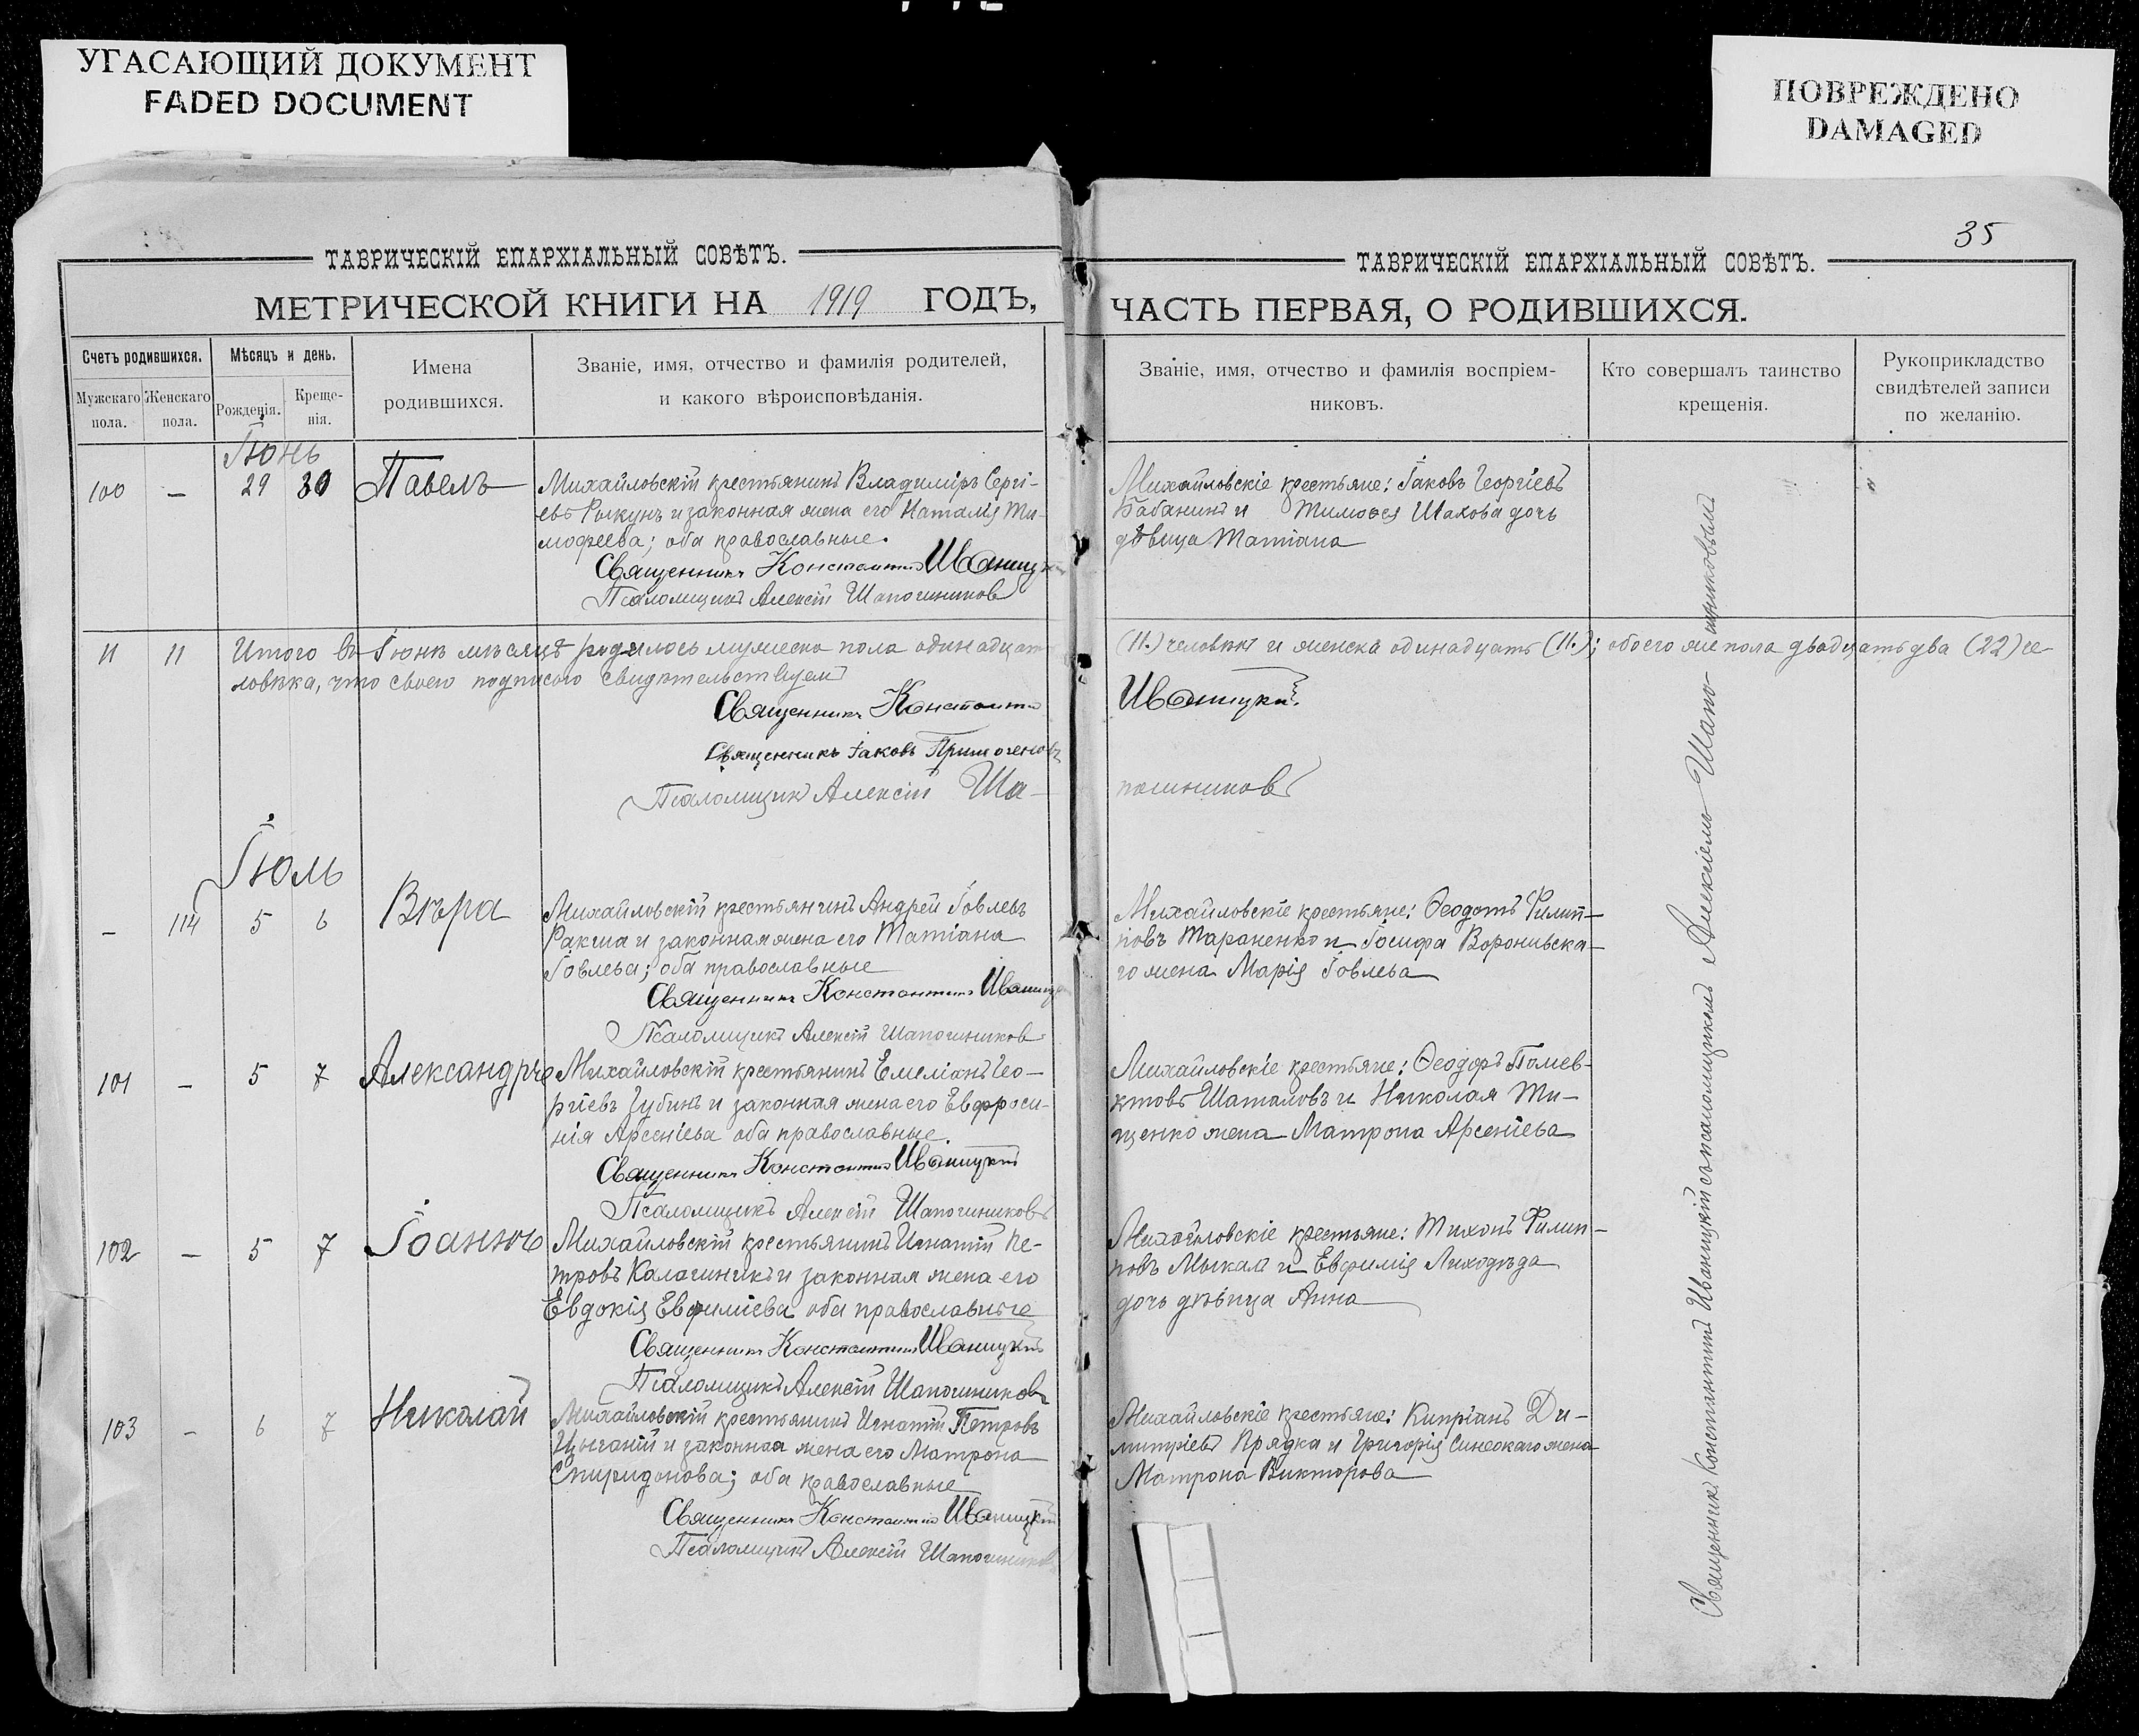 УГАСАЮЩИЙ ДОКУМЕНТ
FADED DOCUMENT
ПОВРЕЖДЕНО
DAMAGED
35
ТАВРИЧЕСКІЙ ЕПАРХІАЛЬНЫЙ СОВѢТЪ.
МЕТРИЧЕСКОЙ КНИГИ НА 1919 ГОДЪ,
Счетъ родившихся.
Мужскаго пола.
Женскаго пола.
Мѣсяцъ и день.
Рожденія.
Креще-
нія.
Имена
родившихся.
Званіе, имя, отчество и фамилія родителей,
и какого вѣроисповѣданія.
ТАВРИЧЕСКІЙ ЕПАРХІАЛЬНЫЙ СОВѢТЪ.
ЧАСТЬ ПЕРВАЯ, О РОДИВШИХСЯ.
Званіе, имя, отчество и фамилія воспріем-
никовъ.
Кто совершалъ таинство
крещенія.
Рукоприкладство
свидѣтелей записи
по желанію.
Іюнь
100 — 29 30 Павелъ
Михайловскій крестьянинъ Владиміръ Сергі-
евъ Рыкунъ и законная жена его Наталія Ти-
мофеева; оба православные.
Священникъ Константинъ Иваницкій
Псаломщикъ Алексій Шапошников
Михайловскіе крестьяне: Іаковъ Георгіевъ
Бабанинъ и Тимоѳея Шахова дочь
дѣвица Татіана
11 11 Итого въ Іюнѣ мѣсяцѣ родилось мужеска пола одинадцать (11.) человѣкъ и женска одинадцать (11.); обоего же пола двадцать два (22) че-
ловѣка, что своею подписою свидѣтельствуем
Священникъ Константинъ Иваницкій.
Священникъ Іаковъ
Псаломщикъ Алексій Шапошниковъ
Іюль
— 114 5 6 Вѣра
Михайловскій крестьянинъ Андрей Іовлевъ
Ракша и законная жена его Татіана
Іовлева; оба православные
Священникъ Константинъ Иваницкій
Псаломщикъ Алексій Шапошников
Михайловскіе крестьяне: Ѳеодотъ Филип-
повъ Тараненко и Іосифа Вороньска-
го жена Марія Іовлева
101 — 5 7 Александръ
Михайловскій крестьянинъ Емеліанъ Гео-
ргіевъ Зубинъ и законная жена его Евфроси-
нія Арсеніева оба православные.
Священникъ Константинъ Иваницкій
Псаломщикъ Алексій Шапошниковъ
Михайловскіе крестьяне: Ѳеодоръ Полев-
ктовъ Шаталовъ и Николая Ти-
щенко жена Матрона Арсеніева
102 — 5 7 Іоаннъ
Михайловскій крестьянинъ Игнатій Пе-
тровъ Калашникъ и законная жена его
Евдокія Евфиміева оба православные
Священникъ Константинъ Иваницкій
Псаломщикъ Алексій Шапошниковъ
Михайловскіе крестьяне: Тихонъ Филип-
повъ Мыкал и Евфимія Лиходѣда
дочь дѣвица Анна
103 — 6 7 Николай
Михайловскій крестьянинъ Игнатій Петровъ
Цыганій и законная жена его Матрона
Спиридонова; оба православные
Священникъ Константинъ Иваницкій
Псаломщикъ Алексій Шапошников
Михайловскіе крестьяне: Кипріанъ Ди-
митріевъ Прядка и Григорія Синеокаго жена
Матрона Викторова
Священникъ Константинъ Иваницкій съ псаломщикомъ Алексіемъ Шапо-
шниковымъ